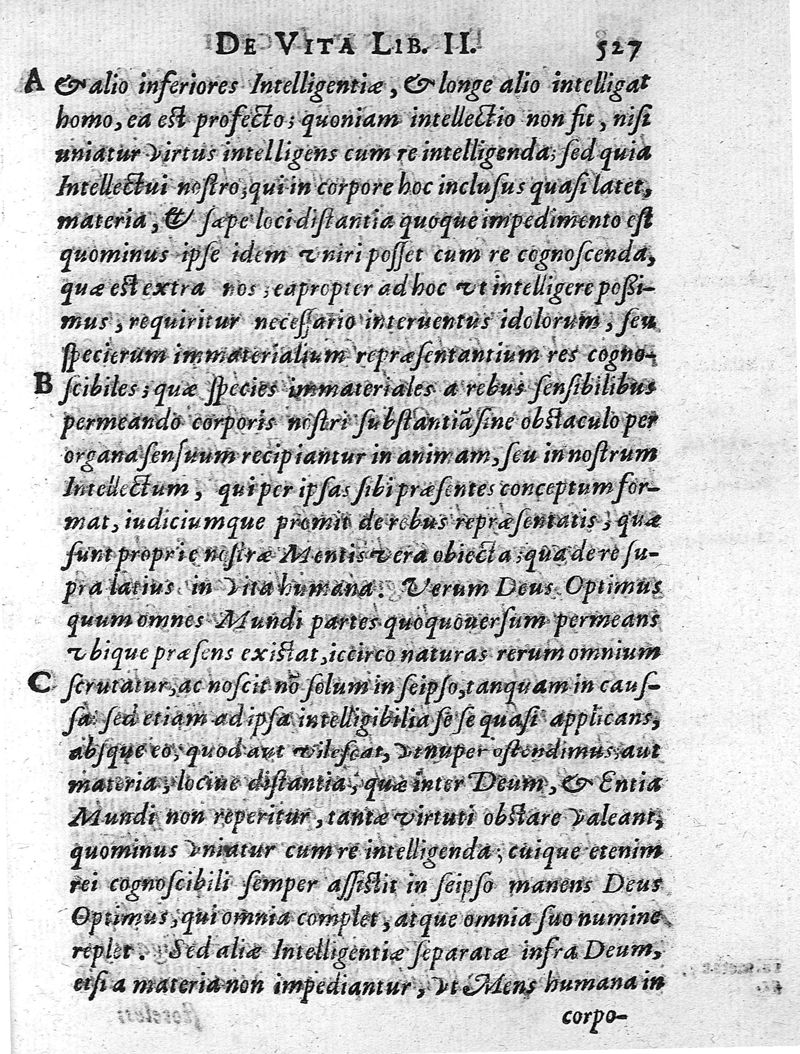 DE VITA LIB. II. 527
A & alio inferiores Intelligentiæ, & longe alio intelligat
homo, ea est profecto; quoniam intellectio non fit, nisi
uniatur virtus intelligens cum re intelligenda; sed quia
Intellectui nostro, qui in corpore hoc inclusus quasi latet,
materia, & sæpe loci distantia quoque impedimento est
quominus ipse idem vniri posset cum re cognoscenda,
quæ est extra nos; eapropter ad hoc vt intelligere possi-
mus, requiritur necessario interuentus idolorum, seu
specierum immaterialium repræsentantium res cogno-
B scibiles; quæ species immateriales a rebus sensibilibus
permeando corporis nostri substantiã sine obstaculo per
organa sensuum recipiantur in animam, seu in nostrum
Intellectum, qui per ipsas sibi præsentes conceptum for-
mat, iudiciumque promit de rebus repræsentatis; quæ
sunt proprie nostræ Mentis vera obiecta; qua de re su-
pra latius in vita humana. Verum Deus Optimus
quum omnes Mundi partes quoquouersum permeans
vbique præsens existat, iccirco naturas rerum omnium
C scrutatur, ac noscit nõ solum in seipso, tanquam in caus-
sa: sed etiam ad ipsa intelligibilia se se quasi applicans,
absque eo, quod aut vilescat, vt nuper ostendimus, aut
materia, lociue distantia, quæ inter Deum, & Entia
Mundi non reperitur, tantæ virtuti obstare valeant,
quominus vniatur cum re intelligenda; cuique etenim
rei cognoscibili semper assistit in seipso manens Deus
Optimus, qui omnia complet, atque omnia suo numine
replet. Sed aliæ Intelligentiæ separatæ infra Deum,
etsi a materia non impediantur, vt Mens humana in
corpo-